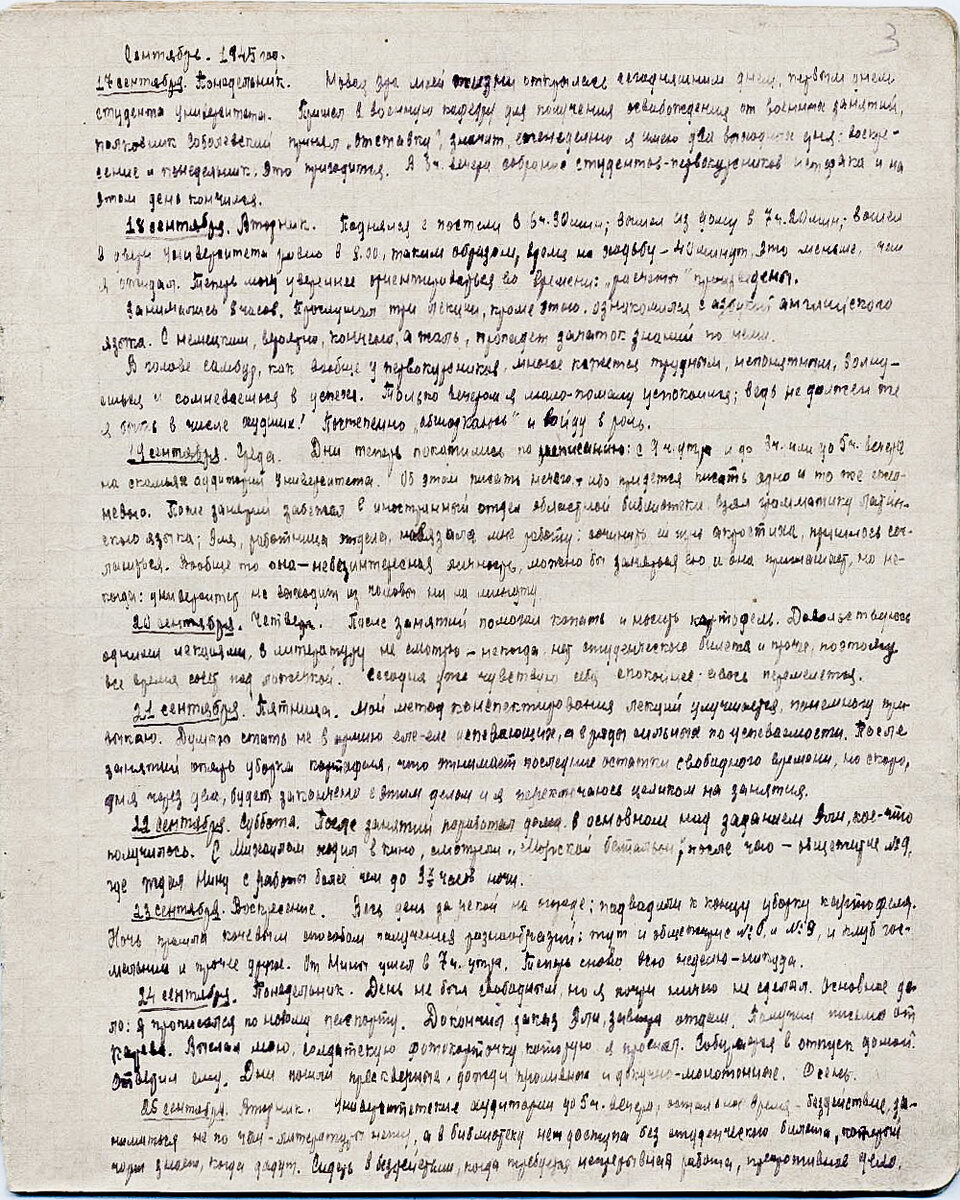 3
Сентябрь. 1945 год.
17 сентября. Понедельник. Новая эра моей жизни открылась сегодняшним днем, первым днем
студента университета. Пришел в военную кафедру для получения освобождения от военных занятий,
полковник Соболевский принял „отставку“, значит, еженедельно я имею два выходных дня: воскре-
сение и понедельник. Это пригодится. А в 3 ч. вечера собрание студентов-первокурсников истфака и на
этом день кончился.
18 сентября. Вторник. Поднялся с постели в 6 ч. 30 мин; вышел из дому в 7 ч. 20 мин; вошел
в двери университета ровно в 8.00, таким образом, время на ходьбу – 40 минут. Это меньше, чем
я ожидал. Теперь могу увереннее ориентироваться во времени: „расчеты“ проведены.
Занимались 8 часов. Прослушал три лекции, кроме этого ознакомился с азбукой английского
языка. С немецким, вероятно, кончено, а жаль, пропадет задаток знаний по нем.
В голове сумбур, как вообще у первокурсников, многое кажется трудным, непонятным, волну-
ешься и сомневаешься в успехе. Только вечером я мало-помалу успокоился; ведь не должен же
я быть в числе худших! Постепенно „обтолкаюсь“ и войду в роль.
19 сентября. Среда. Дни теперь покатились по расписанию: с 9 ч. утра и до 3 ч. или до 5 ч. вечера
на скамьях аудиторий университета. Об этом писать нечего, ибо придется писать одно и то же еже-
невно. После занятий забежал в иностранный отдел областной библиотеки. Взял грамматику латин-
ского языка; Эля, работница отдела, навязала мне работу: сочинить ей три акростиха, пришлось сог-
лашаться. Вообще то она – небезинтересная личность, можно бы заняться ею и она приглашает, но не-
когда: университет не выходит из головы ни на минуту.
20 сентября. Четверг. После занятий помогал копать и носить картофель. Довольствуюсь
одними лекциями, в литературу не смотрю – некогда, нет студенческого билета и прочее, поэтому
все время сосет под ложечкой. Сегодня уже чувствую себя спокойнее – авось перемелется.
21 сентября. Пятница. Мой метод конспектирования лекций улучшается, понемногу при-
выкаю. Думаю стать не в армию еле-еле успевающих, а в ряды сильных по успеваемости. После
занятий опять уборка картофеля, что отнимает последние остатки свободного времени, но скоро,
дня через два, будет закончено с этим делом и я переключаюсь целиком на занятия.
22 сентября. Суббота. После занятий поработал дома в основном над заданием Эли, кое-что
получилось. С Михаилом ходил в кино, смотрели „Морской батальон“, после чего – общежитие №9,
где ждал Нину с работы более чем до 3½ часов ночи.
23 сентября. Воскресение. Весь день за рекой на огороде; подвадили к концу уборку картофеля.
Ночь прошла кочевым способом получения разнообразий: тут и общежитие и №9, и клуб
и прочее другое. От Нины ушел в 7 ч. утра. Теперь снова всю неделю – никуда.
24 сентября. Понедельник. День не был свободным, но я почти ничего не сделал. Основное де-
ло: я прописался по новому паспорту. Докончил заказ Эли, завтра отдам. Получил письмо от
Выслал мою, солдатскую фотокарточку которую я просил. Собирается в отпуск домой.
Ответил ему. Дни пошли прескверные, дожди проливные и докучно-монотонные. Осень.
25 сентября. Вторник. Университетские аудитории до 5 ч. вечера, остальное время – бездействие, за-
ниматься не по чем – литературы нету, а в библиотеку нет доступа без студенческого билета, который
чорт знает, когда дадут. Сидеть в бездействии, когда требуется непрерывная работа, препротивное дело.